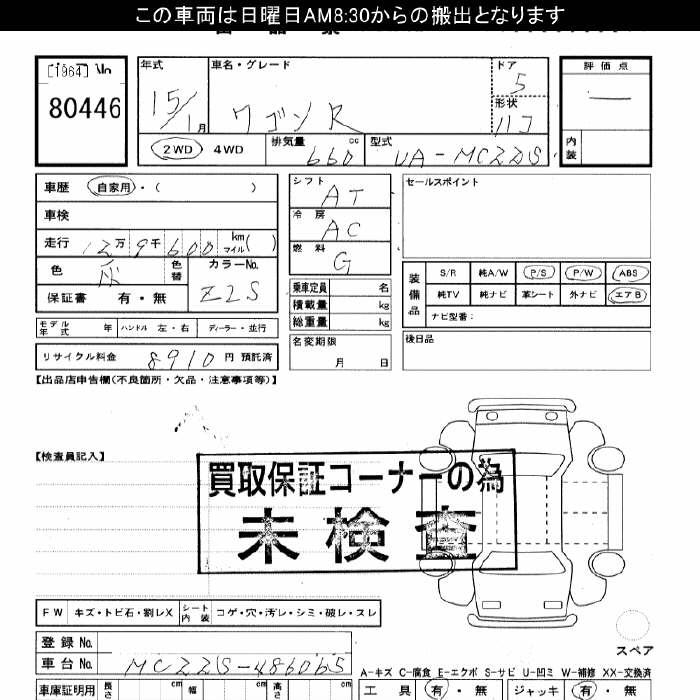 この車両は日曜日AM8:30からの搬出となります
[1964] No
80446
年式 15/1月
車名・グレード ワゴンR
ドア 5
形状 ハコ
評価点 —
内装
2WD 4WD
排気量 660 cc
型式 UA-MC22S
車歴 自家用・( )
車検
走行 12万9千600 km マイル( )
色 灰 色替
カラーNo. Z2S
保証書 有・無
モデル年式 年 ハンドル 左・右 ディーラー・並行
リサイクル料金 8910 円 預託済
シフト AT
冷房 AC
燃料 G
乗車定員 名
積載量 kg
総重量 kg
名変期限 月 日
セールスポイント
装備品
S/R 純A/W P/S P/W ABS
純TV 純ナビ 革シート 外ナビ エアB
ナビ型番:
後日品
【出品店申告欄(不良箇所・欠品・注意事項等)】
【検査員記入】
買取保証コーナーの為
未検査
FW キズ・トビ石・割レX シート内装 コゲ・穴・汚レ・シミ・破レ・スレ
スペア
登録No.
車台No. MC22S-486065
A-キズ C-腐食 E-エクボ S-サビ U-凹ミ W-補修 XX-交換済
車庫証明用 長さ cm 幅 cm 高さ cm
工具 有・無 ジャッキ 有・無